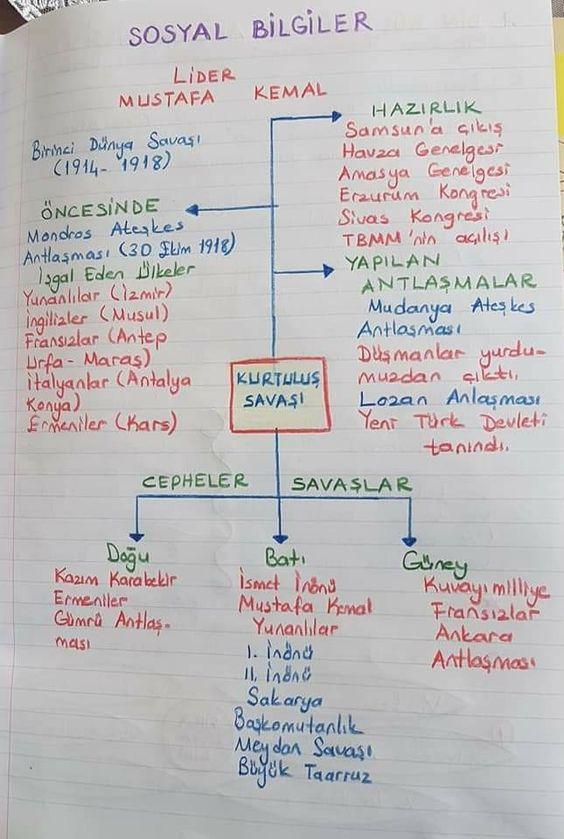 SOSYAL BİLGİLER
LİDER
MUSTAFA KEMAL
Birinci Dünya Savaşı
(1914-1918)
ÖNCESİNDE
Mondros Ateşkes
Antlaşması (30 Ekim 1918)
İşgal Eden Ülkeler
Yunanlılar (İzmir)
İngilizler (Musul)
Fransızlar (Antep
Urfa-Maraş)
İtalyanlar (Antalya
Konya)
Ermeniler (Kars)
HAZIRLIK
Samsun'a çıkış
Havza Genelgesi
Amasya Genelgesi
Erzurum Kongresi
Sivas Kongresi
TBMM'nin açılışı
YAPILAN
ANTLAŞMALAR
Mudanya Ateşkes
Antlaşması
Düşmanlar yurdu-
muzdan çıktı.
Lozan Anlaşması
Yeni Türk Devleti
tanındı.
KURTULUŞ
SAVAŞI
CEPHELER SAVAŞLAR
Doğu
Kazım Karabekir
Ermeniler
Gümrü Antlaş-
ması
Batı
İsmet İnönü
Mustafa Kemal
Yunanlılar
I. İnönü
II. İnönü
Sakarya
Başkomutanlık
Meydan Savaşı
Büyük Taarruz
Güney
Kuvayımilliye
Fransızlar
Ankara
Antlaşması